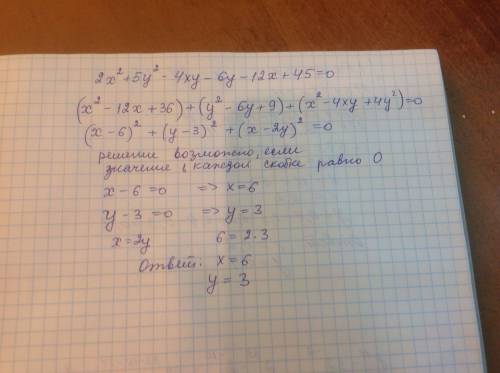 2x² + 5y² - 4xy - 6y - 12x + 45 = 0
(x² - 12x + 36) + (y² - 6y + 9) + (x² - 4xy + 4y²) = 0
(x - 6)² + (y - 3)² + (x - 2y)² = 0
решение возможно, если
значение в каждой скобке равно 0
x - 6 = 0 => x = 6
y - 3 = 0 => y = 3
x = 2y 6 = 2·3
Ответ: x = 6
y = 3